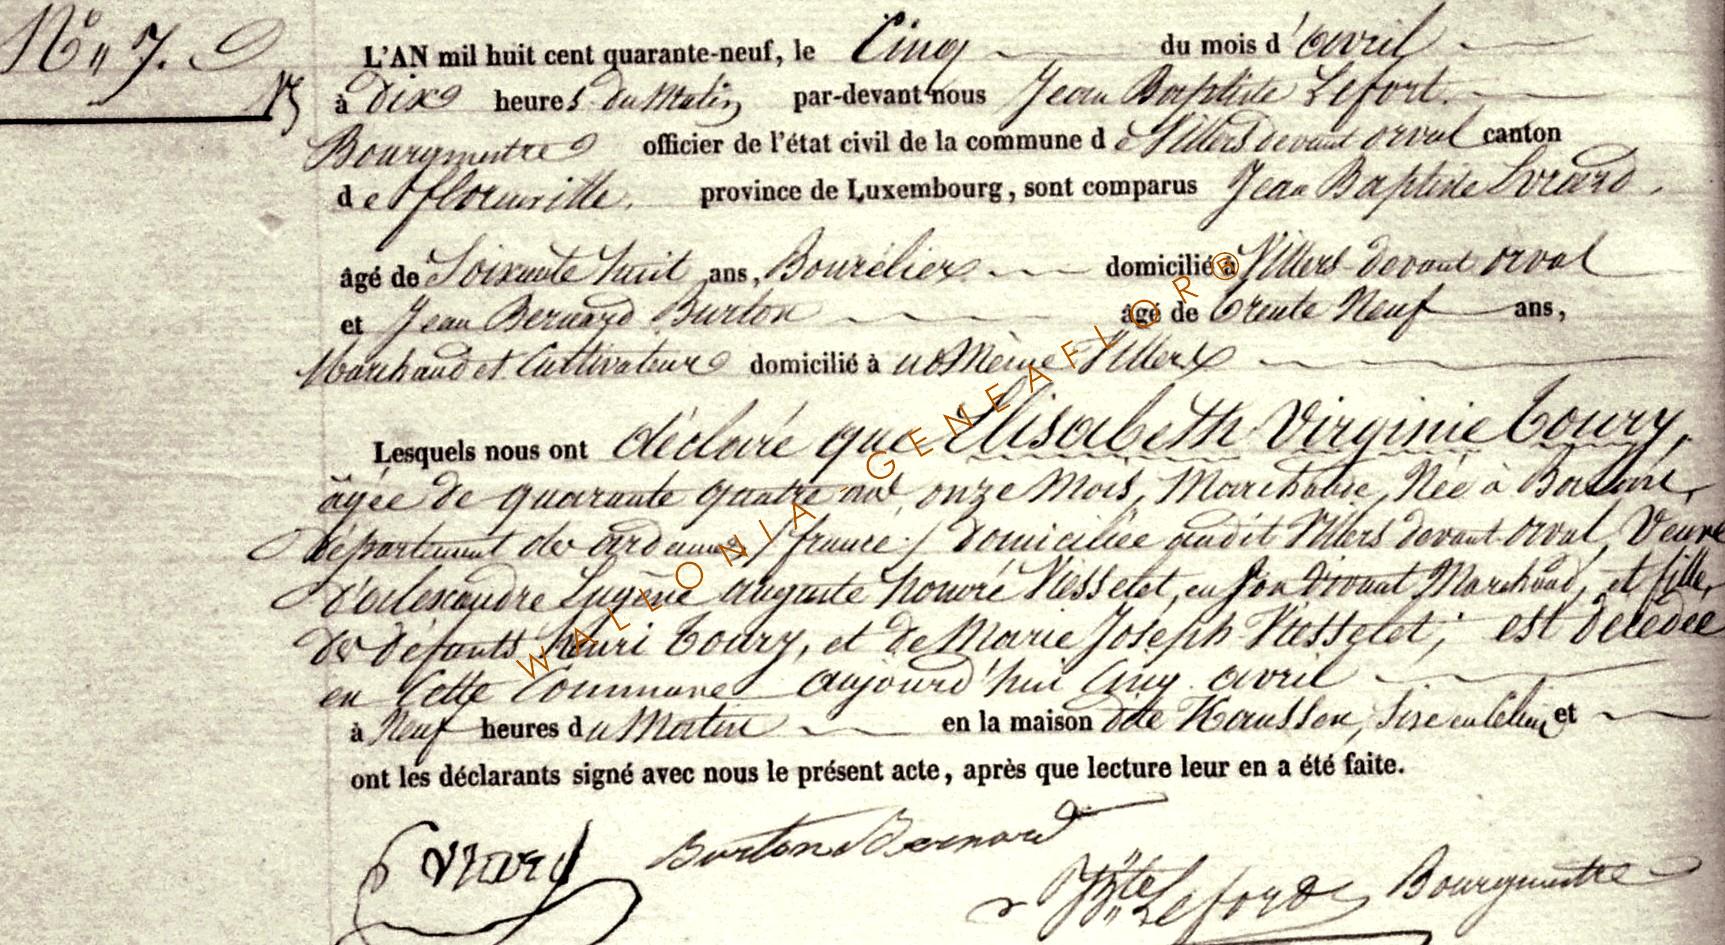 N° 7.
L'AN mil huit cent quarante-neuf, le Cinq du mois d'avril
à Dix heures du Matin par-devant nous Jean Baptiste Lefort.
Bourgmestre officier de l'état civil de la commune de Villers devant orval canton
de florenville. province de Luxembourg, sont comparus Jean Baptiste Evrard,
âgé de Soixante huit ans, Bourélier domicilié à Villers devant orval
et Jean Bernard Burton âgé de trente Neuf ans,
Marchand et Cultivateur domicilié à au Même Villers
Lesquels nous ont déclaré que Elisabeth Virginie Toury,
âgée de quarante quatre ans, onze Mois, Marchande, Née à
département des ardennes /france/ domiciliée audit Villers devant orval, Veuve
d'alexandre Eugène auguste honoré Viesselet, en Son Vivant Marchand, et fille
de défunts henri Toury, et de Marie Joseph Viesselet; est décédée
en Cette Commune aujourd'hui Cinq avril
à Neuf heures du Matin en la maison dite, Sise en et
ont les déclarants signé avec nous le présent acte, après que lecture leur en a été faite.
Evrard Burton Bernard
JBte Lefort Bourgmestre
WALLONIA GENEAFLOR®